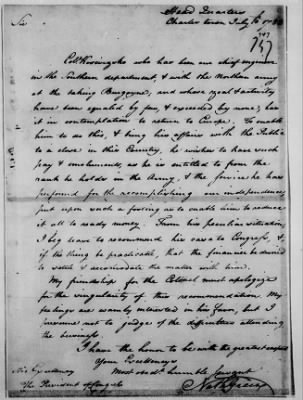 Head Quarters
Charles town July
Sir
Coll Kosciusko who has been our chief engineer
in the Southern department & with the Northern army
at the taking Burgoyne, and whose zeal & activity
have been equaled by few, & exceeded by none, has
it in contemplation to return to Europe. To enable
him to do this, & bring his affairs with the Public
to a close in this Country, he wishes to have such
pay & emoluments, as he is entitled to from the
rank he holds in the Army, & the service he has
performed for the accomplishing our independence;
put upon such a footing as to enable him to reduce
it all to ready money. From his peculiar situation,
I beg leave to recommend his case to Congress, &
if the thing be practicable, that the financier be desired
to settle & accommodate the matter with him.
My friendship for the Colonel must apologize
for the singularity of this recommendation. My
feelings are warmly interested in his favor, but I
presume not to judge of the difficulties attending
the business.
I have the honor to be with the greatest respect
Your Excellency's
Most obdt humble Servant
His Excellency
The President of Congress
Nath Greene